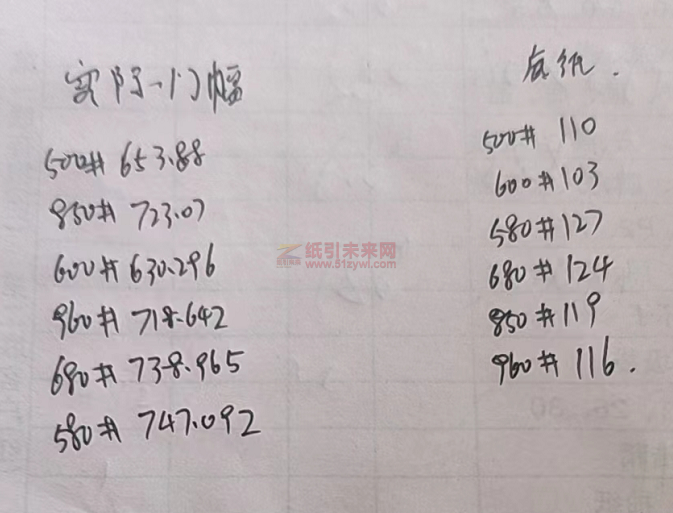 实际门幅
500# 653.88
850# 723.07
600# 630.296
960# 718.642
680# 738.965
580# 747.092
纸引未来网
www.51zywl.com
瓦纸.
500# 110
600# 103
580# 127
680# 124
850# 119
960# 116.